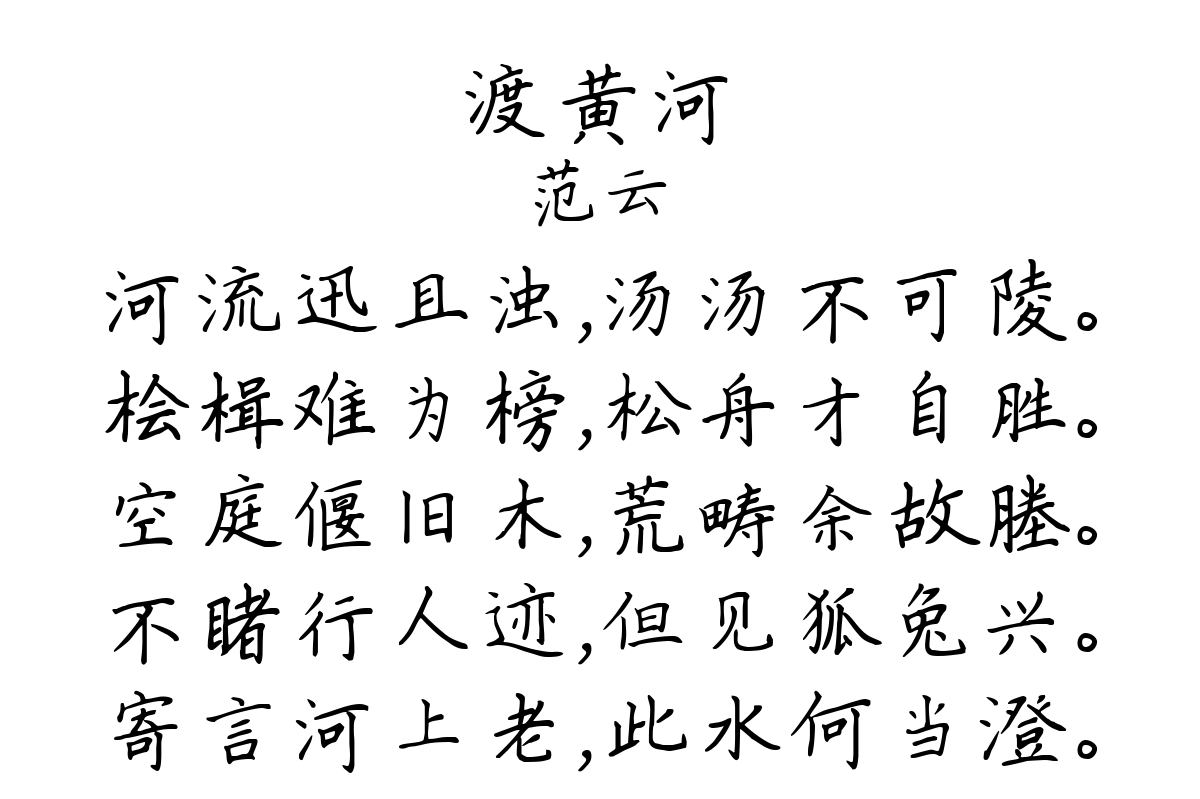 渡黄河
范云
河流迅且浊,汤汤不可陵。
桧楫难为榜,松舟才自胜。
空庭偃旧木,荒畴余故塍。
不睹行人迹,但见狐兔兴。
寄言河上老,此水何当澄。